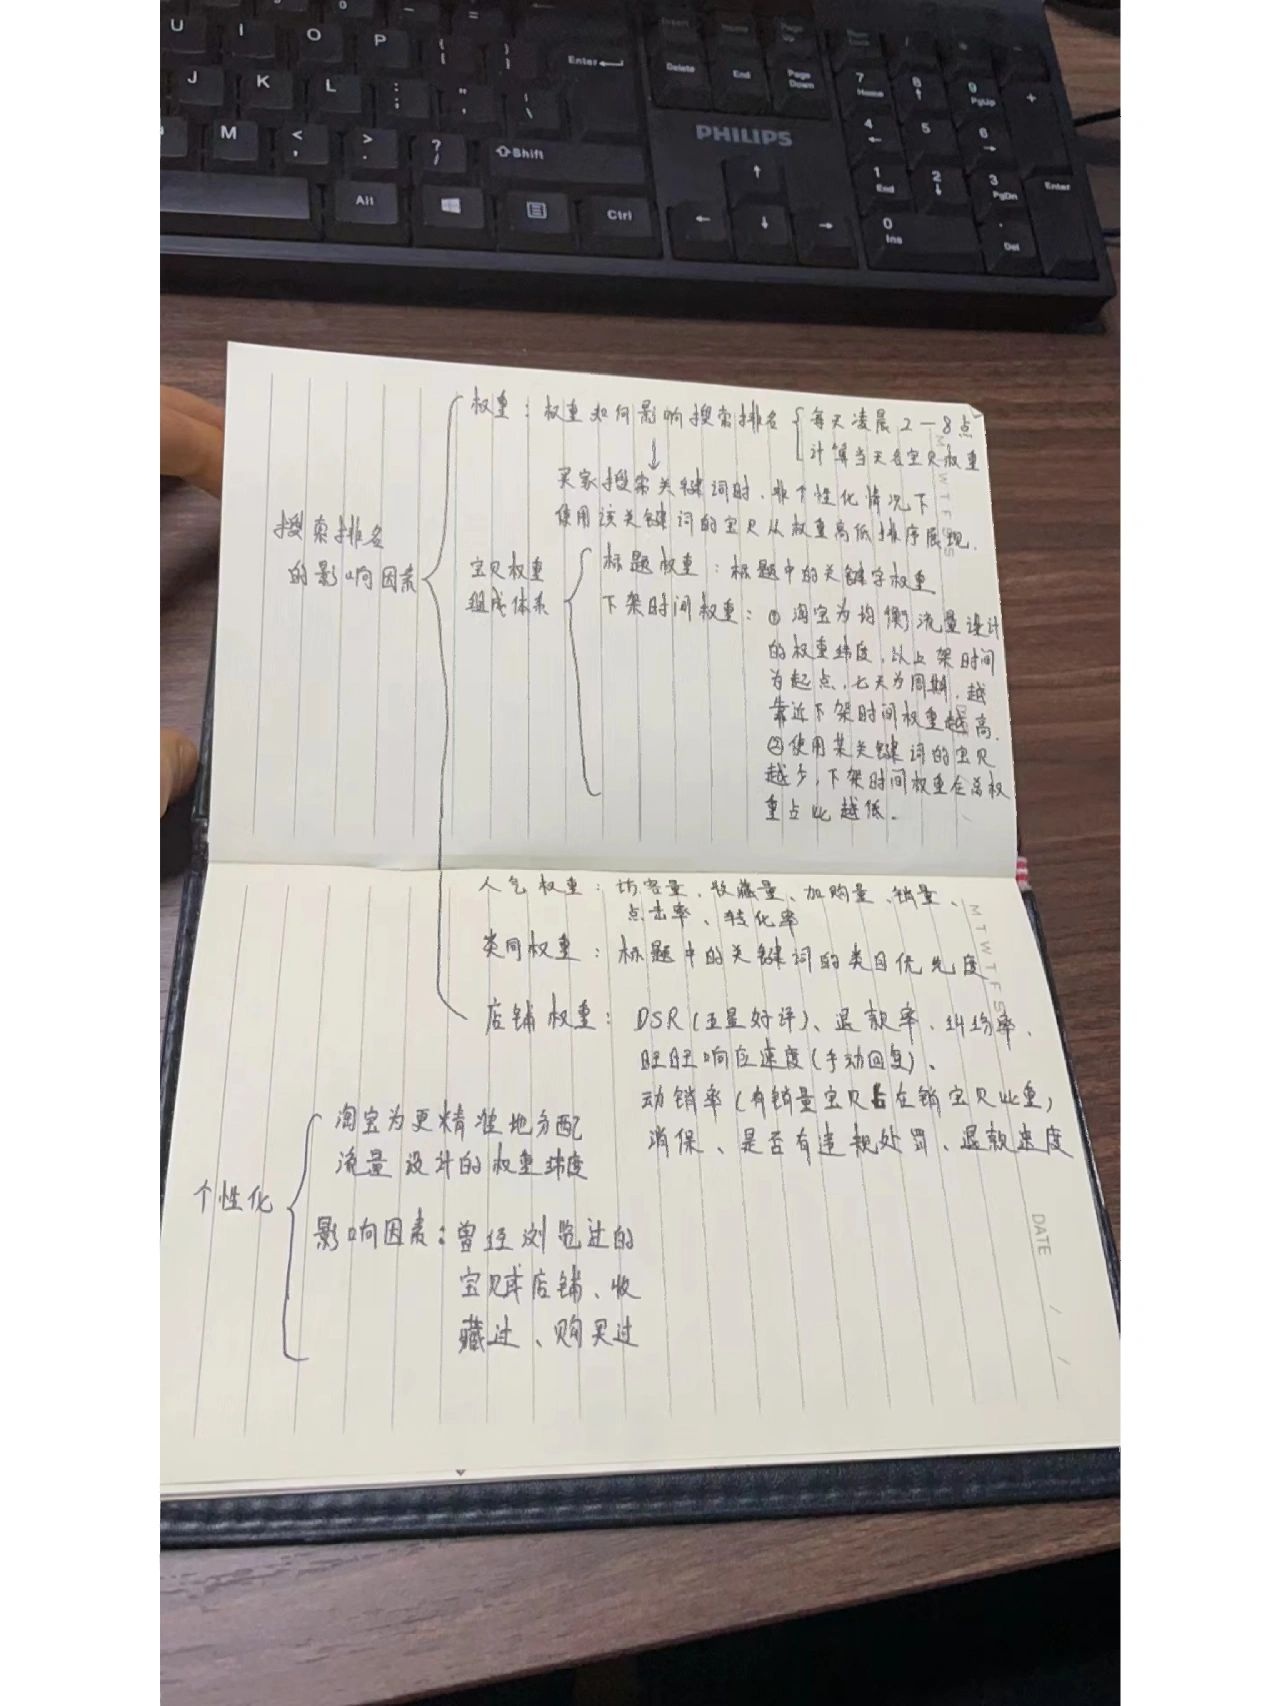 U I O P
Enter
Insert Home Page Up
Delete End Page Down
7 Home 8 9 PgUp +
J K L : ; " '
PHILIPS
4 5 6
M < , > . ? / Shift
1 End 2 3 PgDn Enter
Alt Ctrl
0 Ins . Del
权重：权重如何影响搜索排名 每天凌晨2—8点
计算当天各宝贝权重
买家搜索关键词时，非个性化情况下
使用该关键词的宝贝从权重高低排序展现.
搜索排名
的影响因素
宝贝权重
组成体系
标题权重：标题中的关键字权重
下架时间权重：①淘宝为均衡流量设计
的权重纬度，以上架时间
为起点，七天为周期，越
靠近下架时间权重越高.
②使用某关键词的宝贝
越少，下架时间权重在总权
重占比越低.
M T W T F S S
DATE
人气权重：访客量、收藏量、加购量、销量、
点击率、转化率
类同权重：标题中的关键词的类目优先度
店铺权重：DSR(五星好评)、退款率、纠纷率、
旺旺响应速度(手动回复)、
动销率(有销量宝贝占在销宝贝比重)
消保、是否有违规处罚、退款速度
M T W T F S
个性化
淘宝为更精准地分配
流量设计的权重纬度
影响因素：曾经浏览过的
宝贝或店铺、收
藏过、购买过
DATE / /